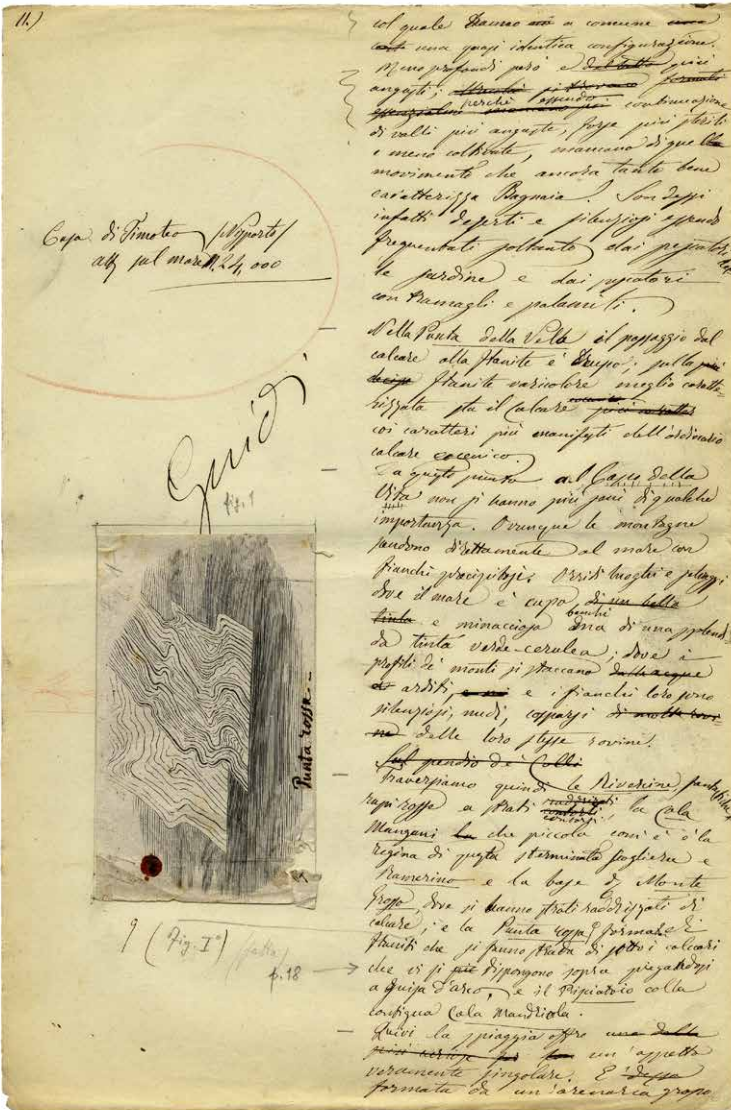 11.)
Casa di Timoteo
alt. sul mare 24,000
Guidi
fig. 1
Punta rossa -
9 (Fig. Iª) (fatta)
p. 18 →
col quale hanno a comune
una quasi identica configurazione.
Meno profondi però e più
angusti; perchè essendo continuazione
di valli più anguste, forse più sterili
e meno coltivate, mancano di quel
movimento che ancora tanto bene
caratterizza Bagnaia. Son dessi
infatti deserti e silenziosi essendo
frequentati soltanto dai pescatori
le sardine e dai pescatori
con tramagli e palamiti.
Nella Punta della Vella il passaggio dal
calcare alla ftanite è sulla
ftanite varicolore meglio caratte-
rizzata sta il calcare
coi caratteri più manifesti dell'ordinario
calcare eocenico.
Da questo punto al Capo della
Vita non si hanno più seni di qualche
importanza. Ovunque le montagne
scendono direttamente al mare con
fianchi precipitosi. Orridi luoghi e selvaggi
dove il mare è cupo di un bella
tinta e minaccioso benchè di una splendi-
da tinta verde-cerulea; dove i
profili de' monti si staccano dalle acque
arditi, e i fianchi loro sono
silenziosi, nudi, cosparsi di molte rovi-
ne delle loro stesse rovine.
Sul pendio de' Colli
Traversiamo quindi le Riverine
rupi rosse a strati raddrizzati contorti la Cala
Mangani che piccola com'è è la
regina di questa sterminata scogliera e
Ramerino e la base di Monte
Grosso, dove si hanno strati raddrizzati di
calcare; e la Punta rossa formata di
ftaniti che si fanno strada di sotto i calcari
che vi si dispongono sopra piegandosi
a guisa d'arco, e il Pisciatoio colla
contigua Cala Mandriola.
Quivi la spiaggia offre una delle
più un'aspetto
veramente singolare. E' dessa
formata da un'arenaria grosso